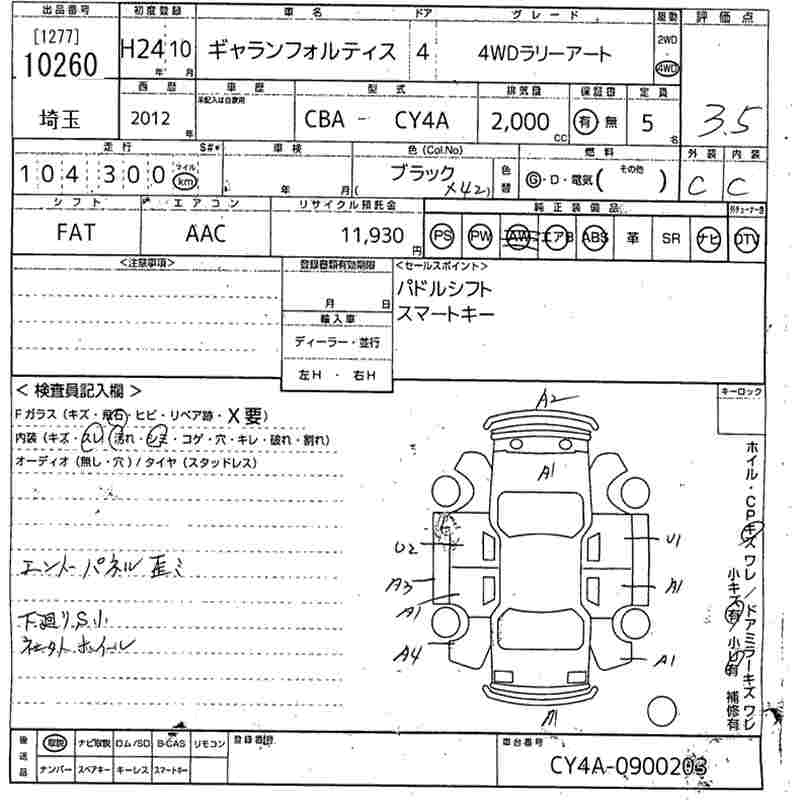 出品番号 初度登録 車名 ドア グレード 駆動 評価点
[1277]
10260 H24 10 ギャランフォルティス 4 4WDラリーアート 2WD
年 月 4WD
西暦 車歴 型式 排気量 保証書 定員
未記入は自家用
埼玉 2012 年 CBA - CY4A 2,000 CC 有 無 5 名 3.5
走行 S#* 車検 色 (Col.No) 燃料 外装 内装
104300 マイル km 年 月 ブラック ( X42) 色替 G・D・電気 ( その他 ) C C
シフト エアコン リサイクル預託金 純正装備品
FAT AAC 11,930 円 PS PW AW エアB ABS 革 SR ナビ DTV
<注意事項> 登録書類有効期限 <セールスポイント>
月 日 パドルシフト
輸入車 スマートキー
ディーラー・並行
左H ・ 右H
< 検査員記入欄 > キーロック
Fガラス (キズ・飛石・ヒビ・リペア跡・X要)
内装 (キズ・スレ・汚れ・シミ・コゲ・穴・キレ・破れ・割れ)
オーディオ (無し・穴) / タイヤ (スタッドレス)
A2
A1
U2 U1
A3 A1
A1
A4 A1
A1
エンドーパネル歪ミ
下廻りS小
ホイル・CPキズ ワレ / ドアミラーキズ ワレ
小キズ有 / 小凹有 補修有
後送品 取説 ナビ取説 ロム/SD B-CAS リモコン 登録番号 車台番号
ナンバー スペアキー キーレス スマートキー CY4A-0900203